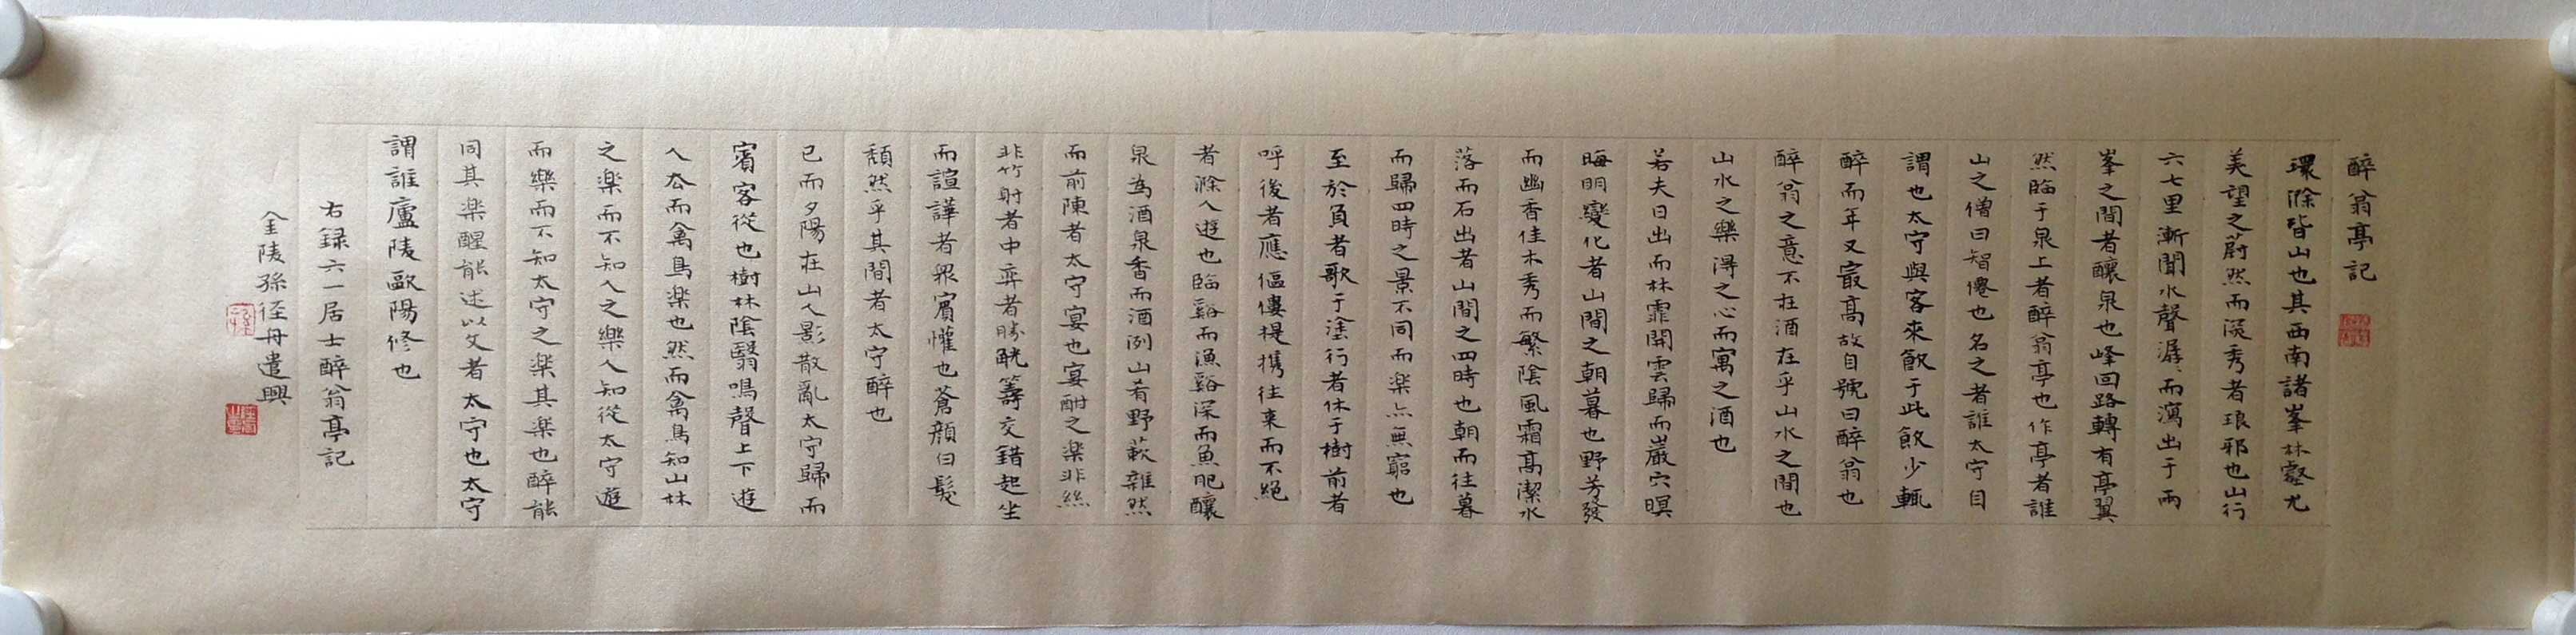 醉翁亭記
環滁皆山也其西南諸峯林壑尤
美望之蔚然而深秀者琅邪也山行
六七里漸聞水聲潺、而瀉出于兩
峯之間者釀泉也峰回路轉有亭翼
然臨于泉上者醉翁亭也作亭者誰
山之僧曰智僊也名之者誰太守自
謂也太守與客來飲于此飲少輒
醉而年又寂高故自號曰醉翁也
醉翁之意不在酒在乎山水之間也
山水之樂得之心而寓之酒也
若夫日出而林霏開雲歸而巖穴暝
晦明變化者山間之朝暮也野芳發
而幽香佳木秀而繁陰風霜高潔水
落而石出者山間之四時也朝而往暮
而歸四時之景不同而楽亦無窮也
至於負者歌于塗行者休于樹前者
呼後者應傴僂提攜往来而不絕
者滁人遊也臨谿而漁谿深而魚肥釀
泉為酒泉香而酒洌山肴野蔌雜然
而前陳者太守宴也宴酣之楽非絲
非竹射者中弈者勝觥籌交錯起坐
而諠譁者衆賓懽也蒼顏白髮
頹然乎其間者太守醉也
已而夕陽在山人影散亂太守歸而
賓客從也樹林陰翳鳴聲上下遊
人去而禽鳥楽也然而禽鳥知山林
之楽而不知人之樂人知從太守遊
而樂而不知太守之楽其楽也醉能
同其楽醒能述以文者太守也太守
謂誰廬陵歐陽修也
右録六一居士醉翁亭記
金陵孫徑舟遣興